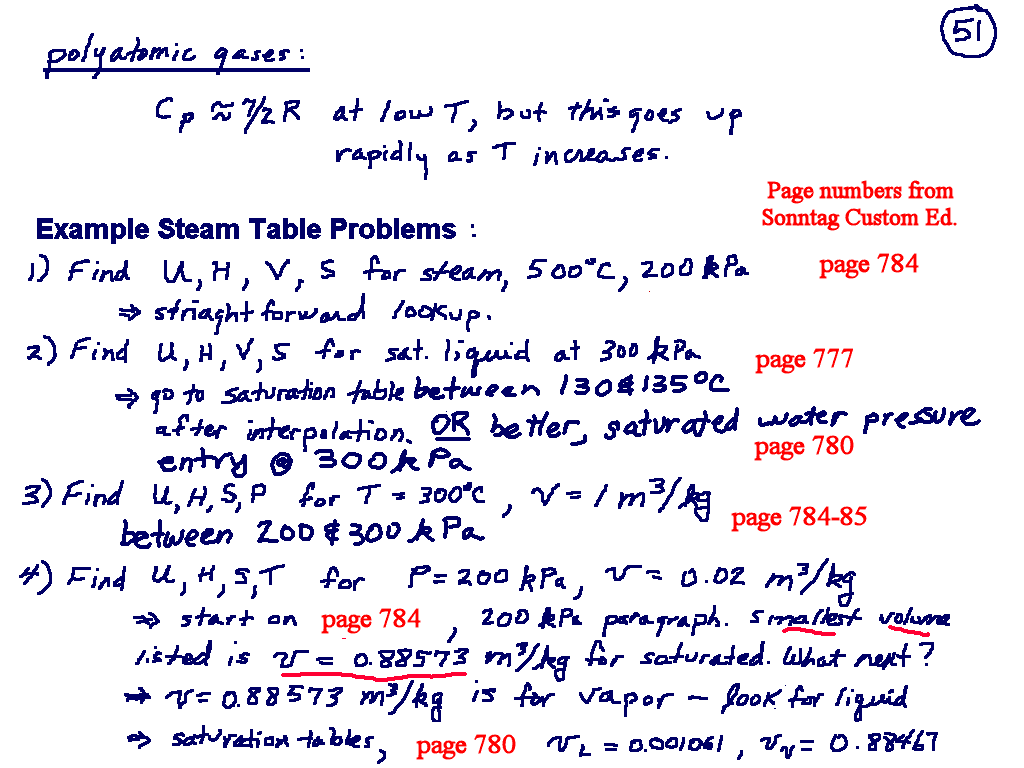 51
polyatomic gases:
Cp ≈ 7/2 R at low T, but this goes up
rapidly as T increases.
Page numbers from
Sonntag Custom Ed.
Example Steam Table Problems :
1) Find U, H, V, S for steam, 500°C, 200 kPa page 784
⇒ striaght forward lookup.
2) Find U, H, V, S for sat. liquid at 300 kPa page 777
⇒ go to saturation table between 130 & 135°C
after interpolation. OR better, saturated water pressure
entry @ 300 kPa page 780
3) Find U, H, S, P for T = 300°C, v = 1 m³/kg page 784-85
between 200 & 300 kPa
4) Find U, H, S, T for P = 200 kPa, v = 0.02 m³/kg
⇒ start on page 784, 200 kPa paragraph. smallest volume
listed is v = 0.88573 m³/kg for saturated. What next?
⇒ v = 0.88573 m³/kg is for vapor – look for liquid
⇒ saturation tables, page 780 vL = 0.001061, vv = 0.88467